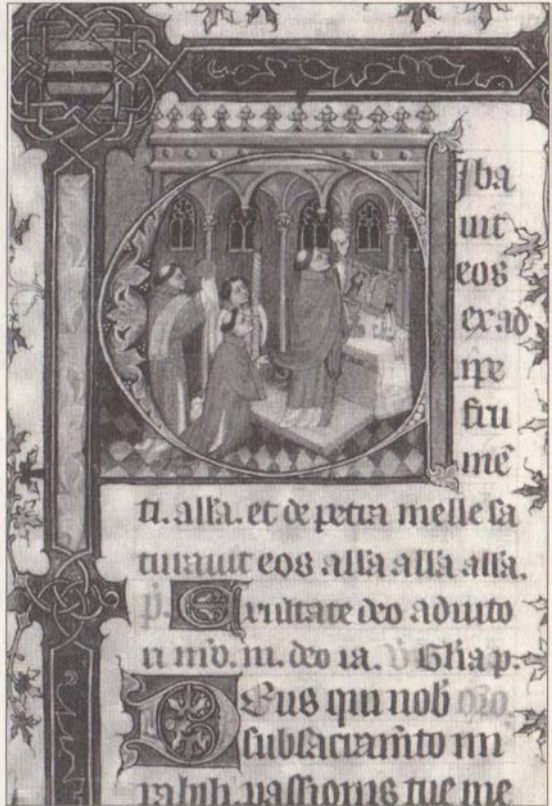 Iba
uit
eos
ex ad
ipe
fru
mē
ti. all'a. et de petra melle sa
turauit eos all'a all'a all'a.
p̄. Exultate deo adiuto
ri nr̄o. in. deo ia. V Gl'ia p.
Deus qui nob oro.
sub sacram̄to mi
rabili. passionis tue me